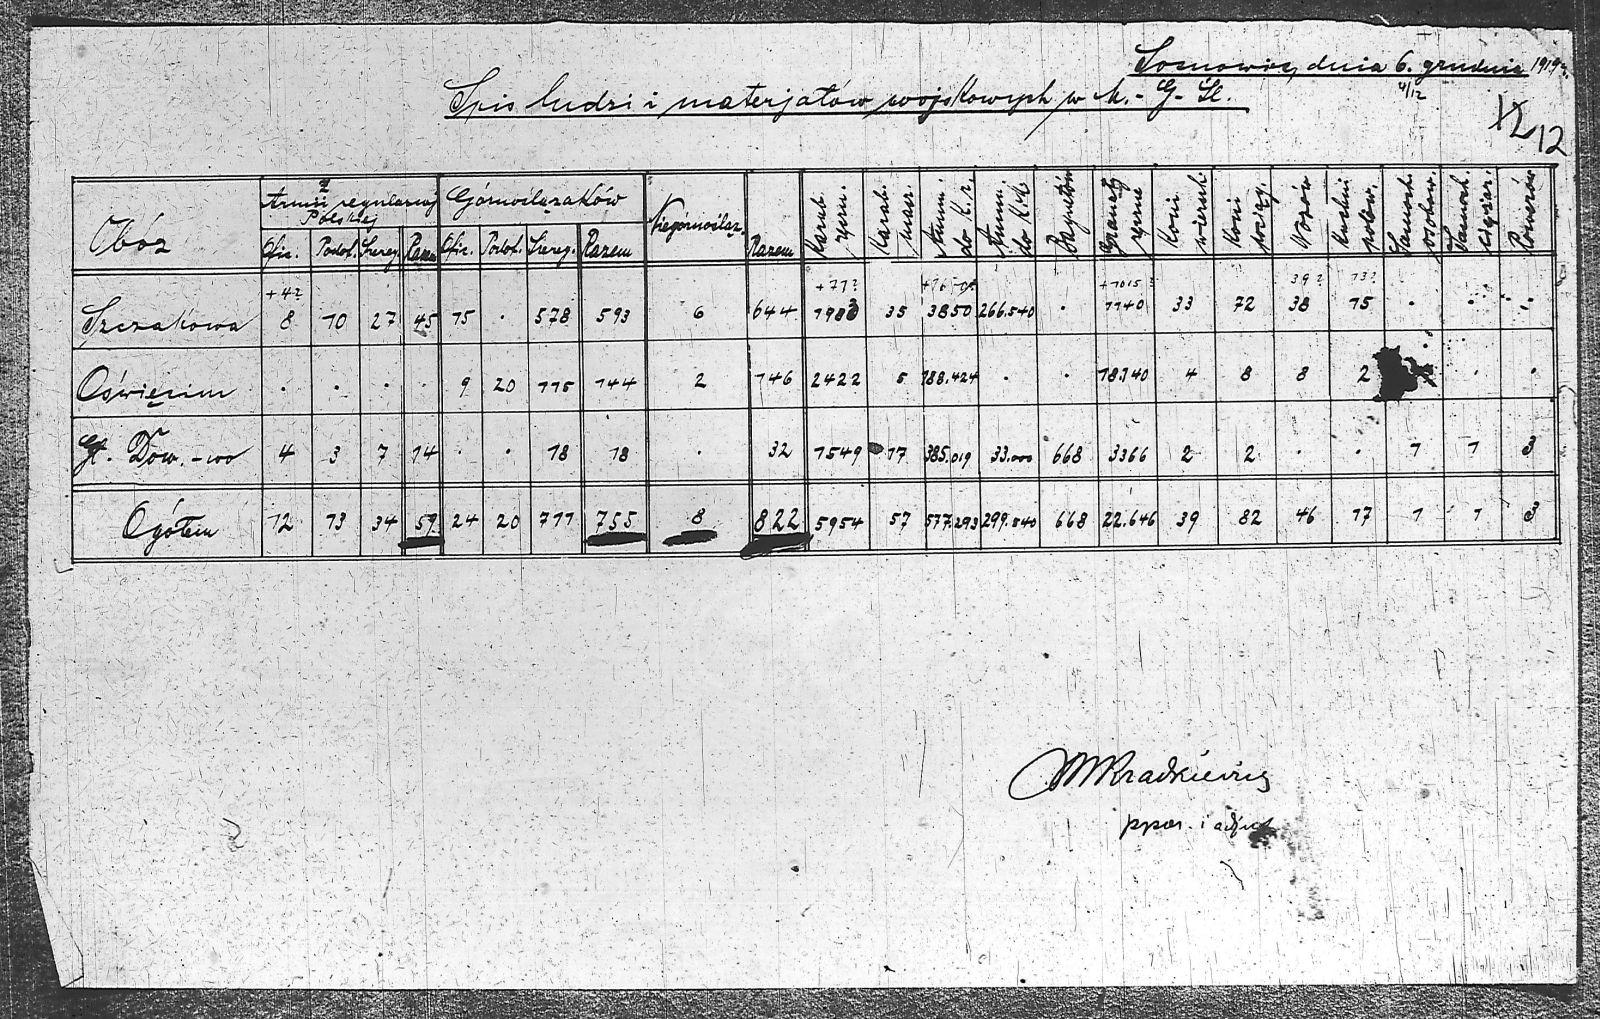 Sosnowiec, dnia 6. grudnia 1919 r.
4/12
Spis ludzi i materjałów wojskowych w M.-G-Śl.
12
Obóz
z Armii regularnej Polskiej
Górnoślązaków
Niegórnośląz.
Razem
Karab. ręczn.
Karab. masz.
Amun. do K. r.
Amun. do K. M.
Bagnetów
Granaty ręczne
Koni wierzch.
Koni pociąg.
Wozów
Kuchni polow.
Samoch. osobow.
Samoch. ciężar.
Rowerów
Ofic. Podof. Szereg. Razem Ofic. Podof. Szereg. Razem
+4? +77? +1015? 39? 13?
Szczakowa 8 10 27 45 15 . 578 593 6 644 1983 35 3850 266.540 . 1140 33 72 38 15 . . .
Oświęcim . . . . 9 20 115 144 2 146 2422 5 188.424 . . 18.140 4 8 8 2 . .
Gł. Dow.-wo 4 3 7 14 . . 18 18 . 32 1549 17 385.019 33.000 668 3366 2 2 . . 1 1 3
Ogółem 12 13 34 59 24 20 711 755 8 822 5954 57 577.293 299.540 668 22.646 39 82 46 17 1 1 3
ppor. i adjut